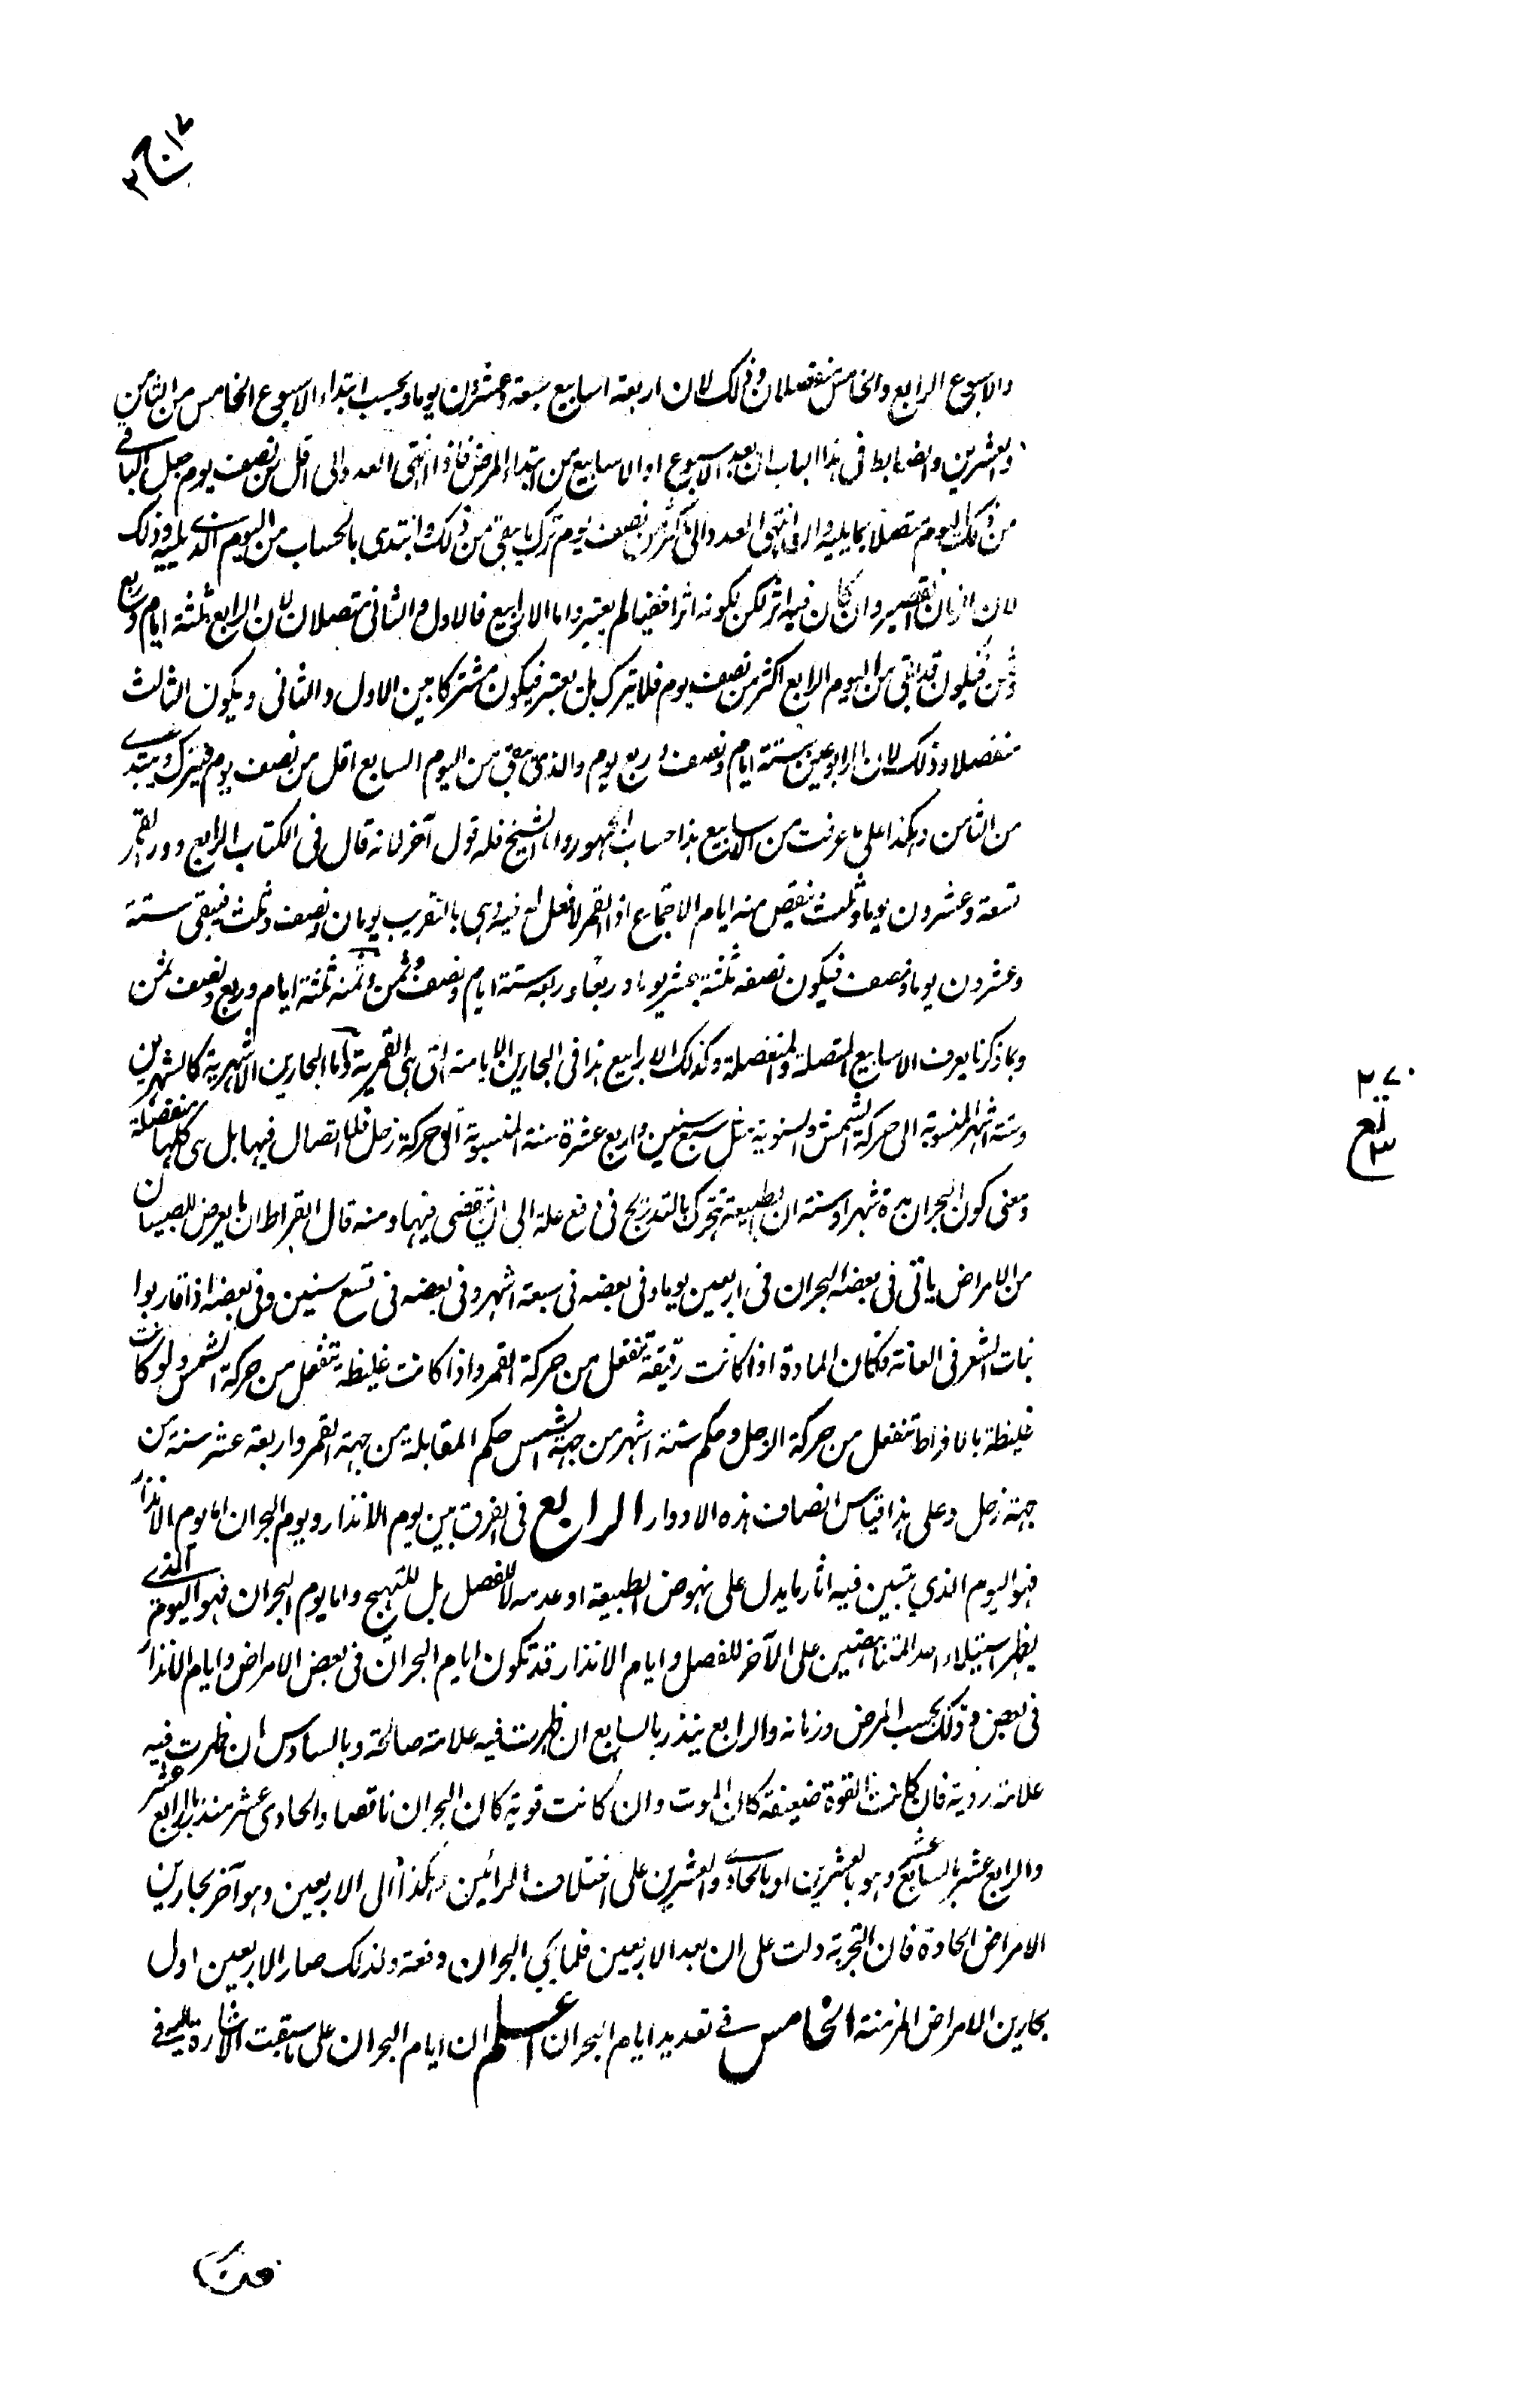 والاسبوع الرابع والخامس منفصلان وذلك لان اربعة اسابيع سبعة وعشرون يوما ويحسب ابتداء الاسبوع الخامس من الثامن
والعشرين والضابط فى هذا الباب ان يعد الاسبوع او الاسابيع من ابتداء المرض فاذا انتهى العدد الى اقل من نصف يوم جعل الباقى
من ذلك اليوم متصلا بما يليه وان انتهى العدد الى اكثر من نصف يوم ترك ما بقى من ذلك وابتدى بالحساب من اليوم الذى يليه وذلك
لان الزمان القصير وان كان فيه اثر لكن لكونه اثرا خفيا لم يعتبر واما الارابيع فالاول والثانى متصلان لان الرابع ثلثة ايام وربع
وثمن فيكون قد بقى من اليوم الرابع اكثر من نصف يوم فلا يترك بل يعتبر فيكون مشتركا بين الاول والثانى ويكون الثالث
منفصلا وذلك لان الرابوعين ستة ايام ونصف وربع يوم والذى بقى من اليوم السابع اقل من نصف يوم فيترك ويبتدى
من الثامن وهكذا على ما عرفت من الاسابيع هذا حساب الجمهور واما الشيخ فله قول آخر لانه قال فى الكتاب الرابع دور القمر
تسعة وعشرون يوما وثلث ينقص منه ايام الاجتماع اذ القمر لا فعل له فيه وهى بالتقريب يومان ونصف وثلث فيبقى ستة
وعشرون يوما ونصف فيكون نصفه ثلثة عشر يوما وربعا وربعه ستة ايام ونصف وثمن وثمنه ثلثة ايام وربع ونصف ثمن
وبما ذكرنا يعرف الاسابيع المتصلة والمنفصلة وكذلك الارابيع هذا فى البحارين الايامية التى هى القمرية واما البحارين الاشهرية كالشهرين
وستة اشهر المنسوبة الى حركة الشمس والسنوية مثل سبع سنين واربع عشرة سنة المنسوبة الى حركة زحل فلا اتصال فيها بل هى كلها منفصلة
ومعنى كون البحران مدة شهر او سنة ان الطبيعة تتحرك بالتدريج فى دفع علة الى ان تقضى فيها ومنه قال ابقراط ان ما يعرض للصبيان
من الامراض ياتى فى بعضه البحران فى اربعين يوما وفى بعضه فى سبعة اشهر وفى بعضه فى تسع سنين وفى بعضه اذا قاربوا
نبات الشعر فى العانة فكان المادة اذا كانت رقيقة تنفعل من حركة القمر واذا كانت غليظة تنفعل من حركة الشمس ولو كانت
غليظة بالافراط تنفعل من حركة الزحل وحكم ستة اشهر من جهة الشمس حكم المقابلة من جهة القمر واربعة عشر سنة من
جهة زحل وعلى هذا قياس انصاف هذه الادوار الرابع فى الفرق بين يوم الانذار ويوم البحران اما يوم الانذار
فهو اليوم الذي يتبين فيه اثار ما يدل على نهوض الطبيعة او عدمه لا للفصل بل للتهيج واما يوم البحران فهو اليوم الذى
يظهر استيلاء احد المتناهضين على الآخر للفصل وايام الانذار قد تكون ايام البحران فى بعض الامراض وايام الانذار
فى بعض وذلك بحسب المرض وزمانه والرابع ينذر بالسابع ان ظهرت فيه علامة صالحة وبالسادس ان ظهرت فيه
علامة ردية فان كانت القوة ضعيفة كان الموت وان كانت قوية كان البحران ناقصا والحادى عشر منذر بالرابع عشر
والرابع عشر بالسابع عشر وهو بالعشرين او بالحادى والعشرين على اختلاف الرائين وهكذا الى الاربعين وهو آخر بحارين
الامراض الحادة فان التجربة دلت على ان بعد الاربعين قلما يجي البحران دفعة ولذلك صار الاربعين اول
بحارين الامراض المزمنة الخامس فى تعديد ايام البحران اعلم ان ايام البحران على ما سبقت الاشارة اليه فى
٢٧٠